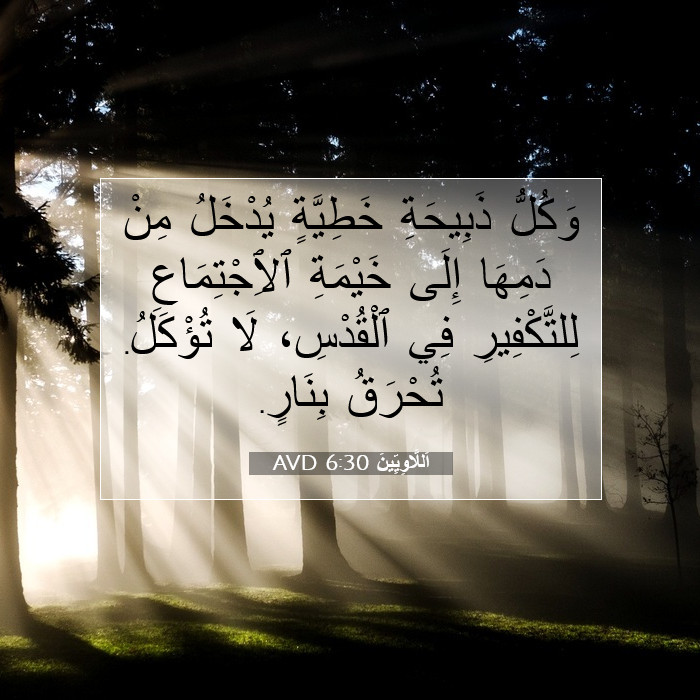 وَكُلُّ ذَبِيحَةِ خَطِيَّةٍ يُدْخَلُ مِنْ
دَمِهَا إِلَى خَيْمَةِ ٱلِٱجْتِمَاعِ
لِلتَّكْفِيرِ فِي ٱلْقُدْسِ، لَا تُؤْكَلُ.
تُحْرَقُ بِنَارٍ.
اَللَّاوِيِّينَ 6:30 AVD